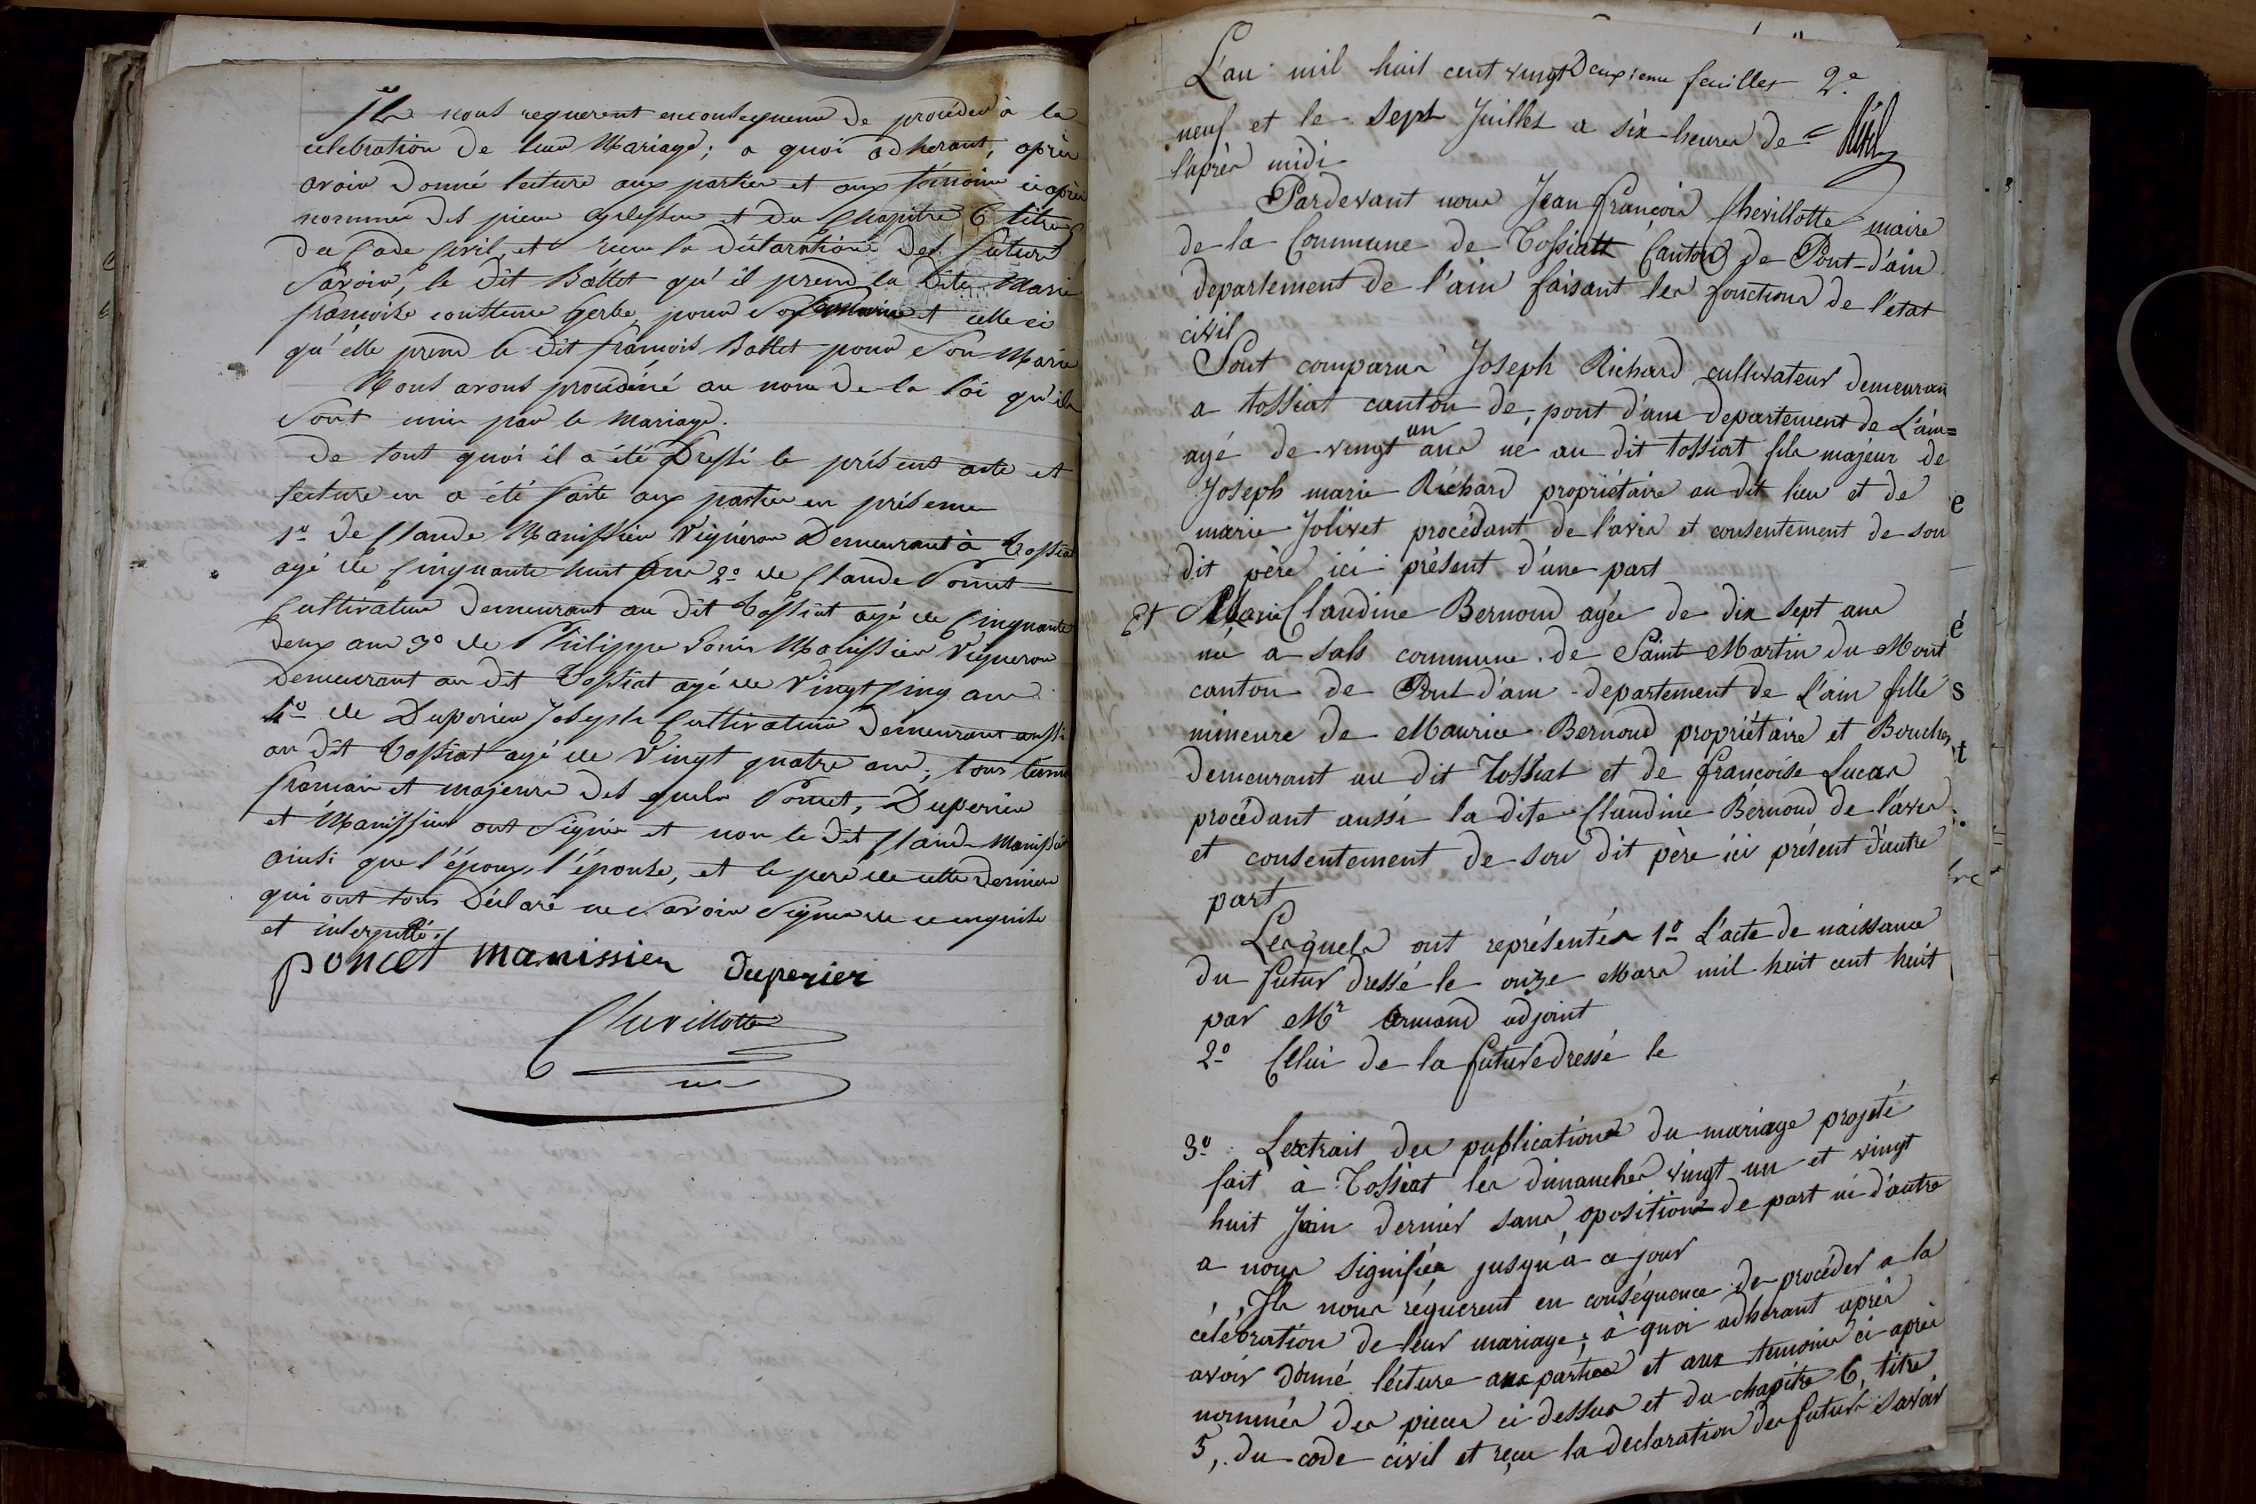 Ils nous requerent en consequence de procéder à la
celebration de leur Mariage; a quoi adherant, après
avoir Donné lecture aux parties et aux témoins ci après
nommés des pieces cydessus et du Chapitre 6 titre
du Code Civil, et recu la déclaration des futurs
Savoir, le dit Ballet qu'il prend la dite Marie
françoise Gerbe, pour Son et celle ci
qu'elle prend le dit françois Ballet pour Son Mari
Nous avons prononcé au nom de la loi qu'ils
Sont unis par le mariage.
De tout quoi il a été Dressé le présent acte et
lecture en a été faite aux parties en présence
1º de Claude Manissier Vigneron Demeurant à Tossiat
agé de Cinquante huit ans 2º de Claude Poncet
Cultivateur Demeurant au dit Tossiat agé de Cinquante
deux ans 3º de Philippe Louis Manissier Vigneron
Demeurant au dit Tossiat agé de Vingt Cinq ans
4º de Duperier Joseph Cultivateur Demeurant aussi
au dit Tossiat agé de Vingt quatre ans, tous temoins
francais et majeurs des quels Poncet, Duperier
et Manissier ont Signé et non le dit Claude Manissier
ainsi que l'époux, l'épouse, et le pere de cette derniere
qui ont tous Déclaré ne Savoir Signer de ce enquis
et interpellé.
poncet manissier duperier
Chevillotte
L'an mil huit cent vingt Deuxieme feuillet 2.e
neuf et le sept Juillet a six heures de
l'après midi
Pardevant nous Jean françois Chevillotte maire
de la Commune de Tossiatt Canton de Pont-d'ain
departement de l'ain faisant les fonctions de l'état
civil
Sont comparus Joseph Richard cultivateur demeuran
a tossiat canton de, pont d'ain departement de L'ain=
agé de vingt un ans né au dit tossiat fils majeur de
Joseph marie Richard propriétaire au dit lieu et de
marie Jolivet procédant de l'avis et consentement de son
dit père ici présent d'une part
Et Marie Claudine Bernoud agée de dix sept ans
né a sals commune de Saint Martin du Mont
canton de Pont d'ain departement de L'ain fille
mineure de Maurice Bernoud propriétaire et Boucher
demeurant au dit Tossiat et de françoise Lucas
procédant aussi la dite Claudine Bernoud de l'avis
et consentement de son dit père ici présent d'autre
part
Lesquels ont représentés 1º L'acte de naissance
du futur dressé le onze Mars mil huit cent huit
par Mr Armand adjoint
2º Celui de la future dressé le
3º Lextrait des publications du mariage projeté
fait à Tossiat les dimanches vingt un et vingt
huit Juin dernier sans opositions de part ni d'autre
a nous signifiée jusqu'à ce jour
Ils nous réquerent en conséquence de procéder a la
célébration de leur mariage; à quoi adhérant après
avoir donné lécture aux parties et aux temoins ci après
nommés des pieces ci dessus et du chapitre 6, titre
5, du code civil et reçu la declaration des futurs savoir